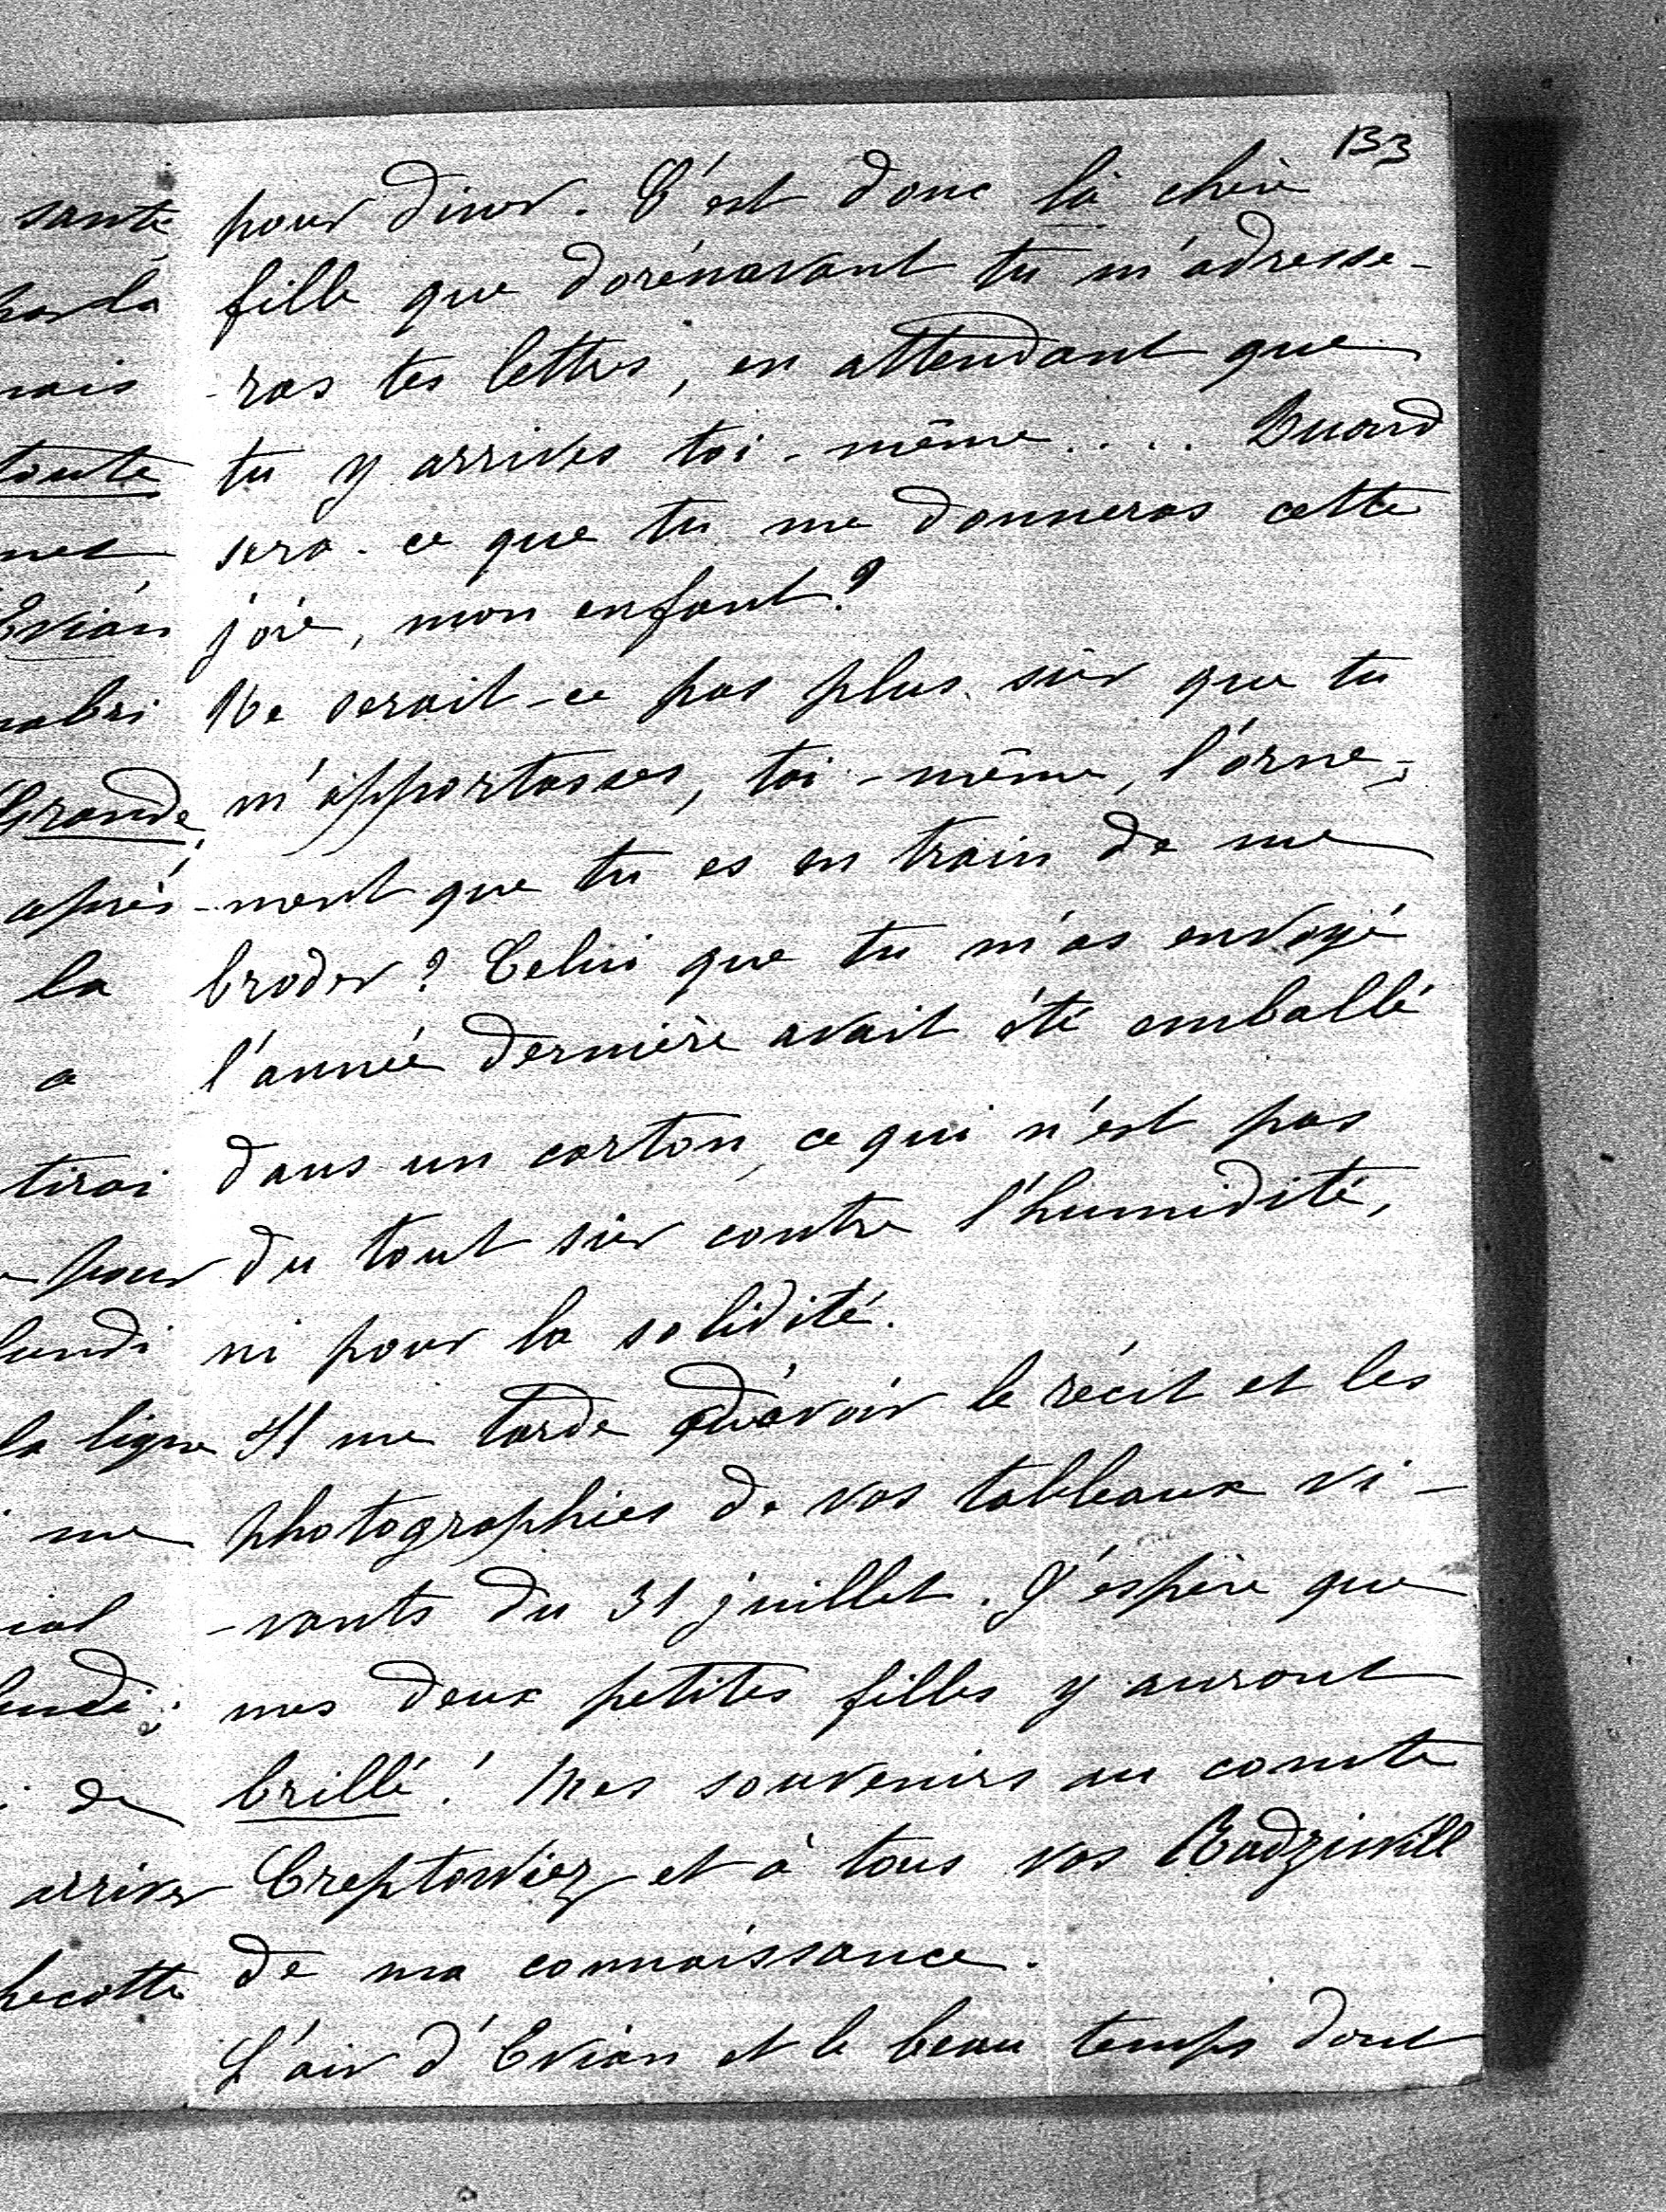 133
pour diner. C'est donc là chère
fille que dorénavant tu m'adresse-
-ras tes lettres, en attendant que
tu y arrives toi-même.... Quand
sera-ce que tu me donneras cette
joie, mon enfant?
Ne serait-ce pas plus sûr que tu
m'apportasses, toi-même, l'orne-
-ment que tu es en train de me
broder? Celui que tu m'as envoyé
l'année dernière avait été emballé
dans un carton, ce qui n'est pas
du tout sûr contre l'humidité,
ni pour la solidité.
Il me tarde d'avoir le récit et les
photographies de vos tableaux vi-
-vants du 31 juillet. J'espère que
mes deux petites filles y auront
brillé! Mes souvenirs au comte
Creptowicz et à tous vos Radziwill
de ma connaissance.
L'air d'Evian et le beau temps dont
santé
mais
toute
Evian
Grande
après
la
a
tirai
pour
lundi
la ligne
me
de
arriver